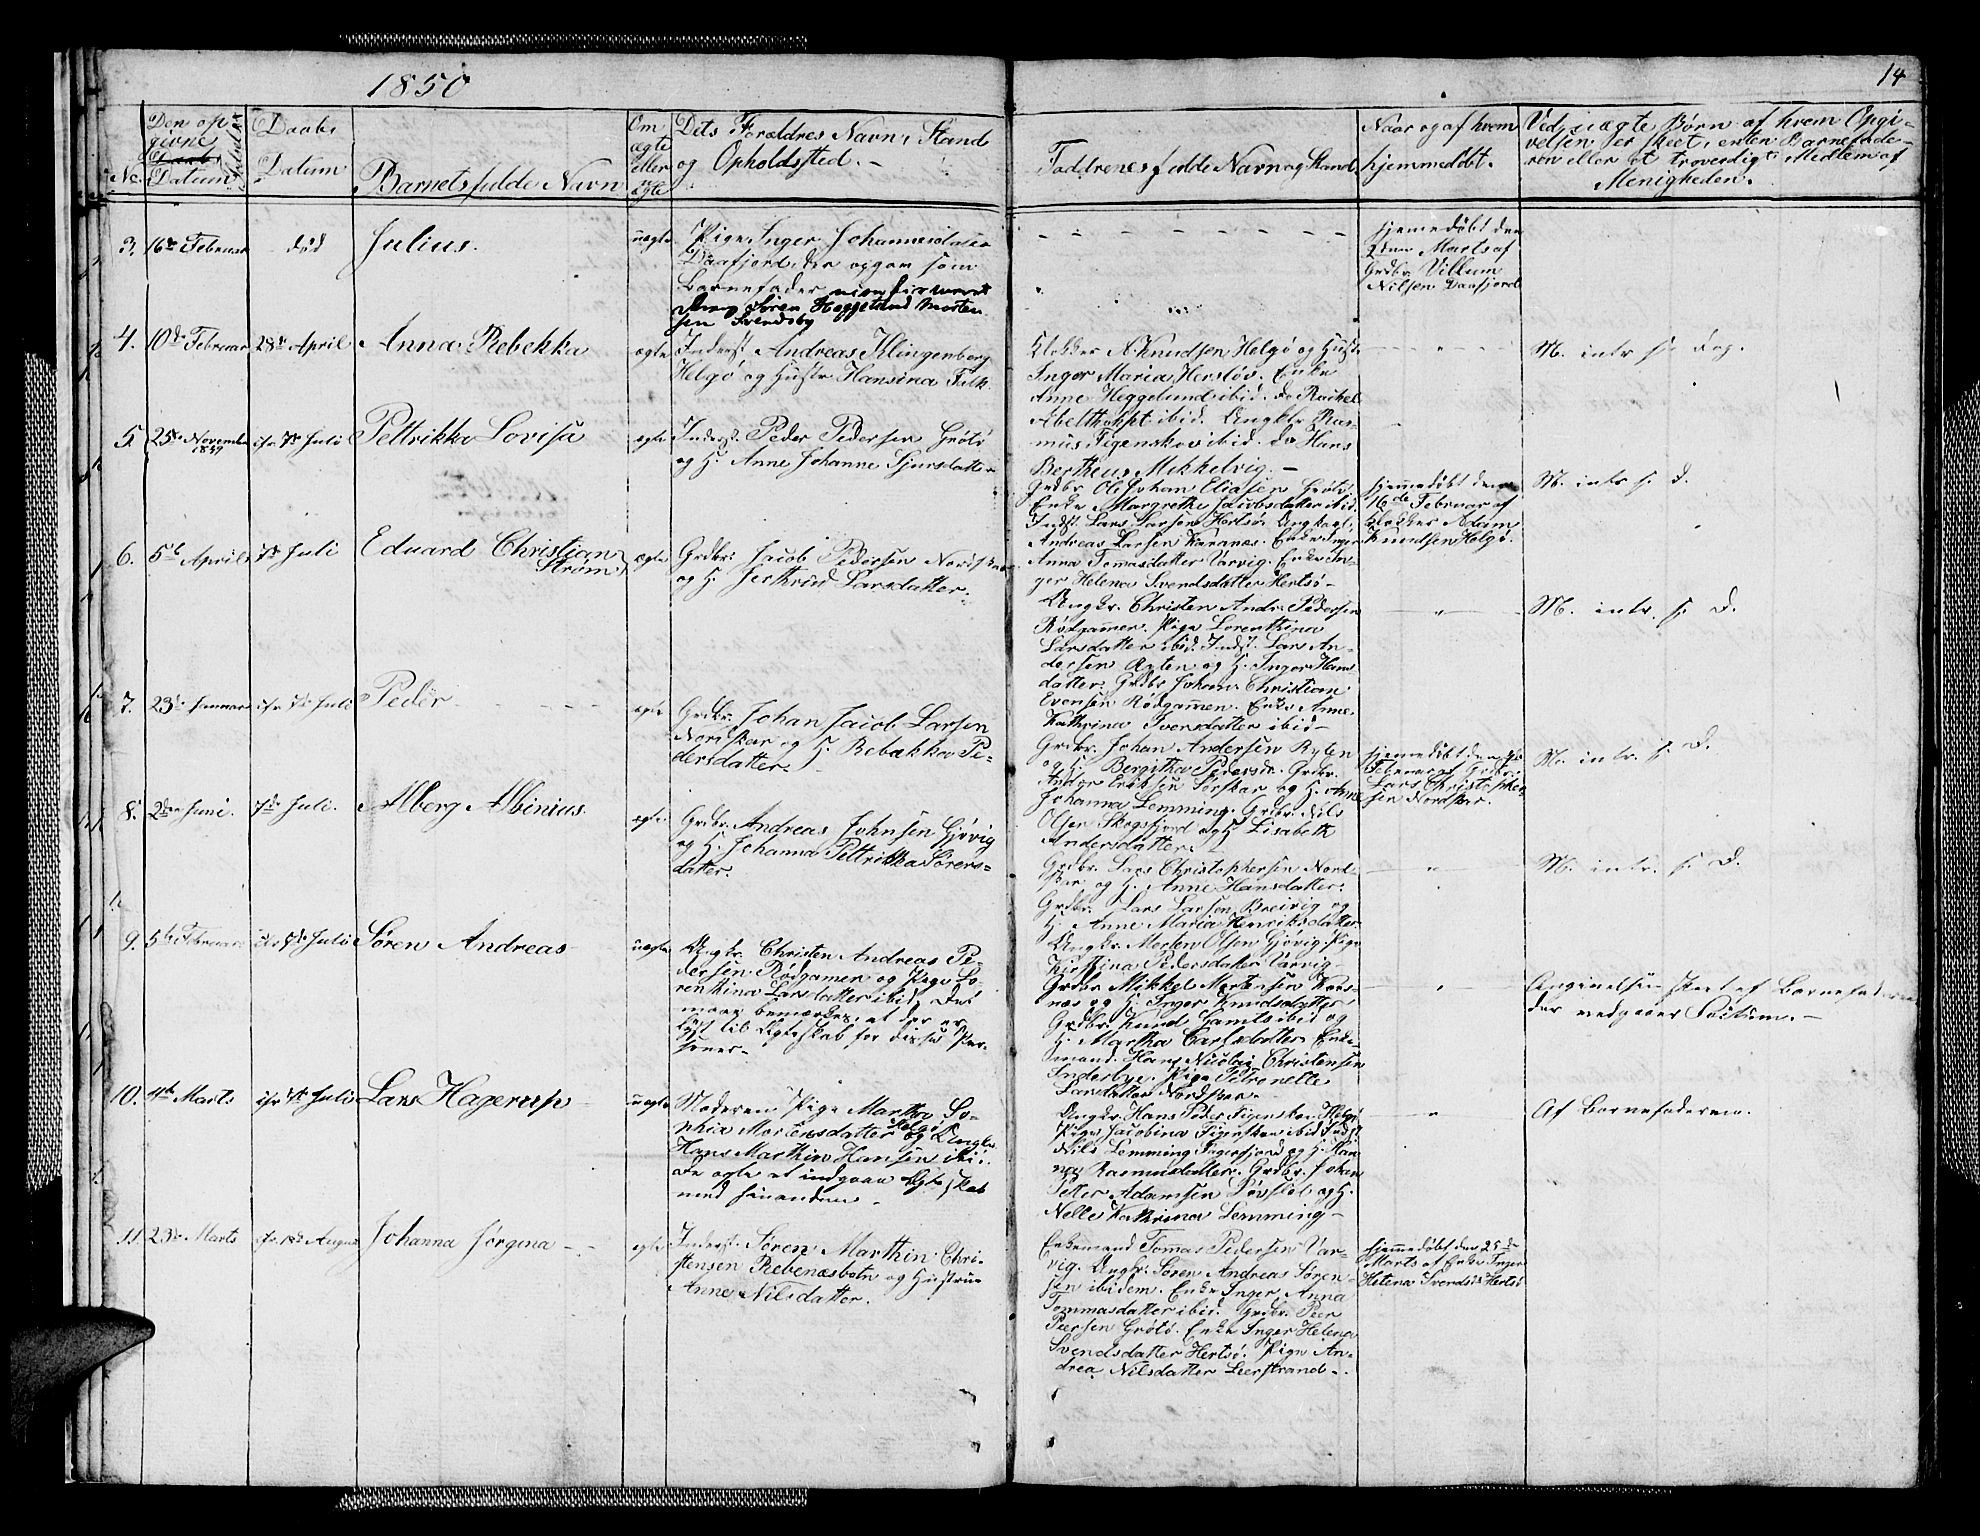 1850
14
Den op
givne
Daabs
Datum
Fødsels
No
Daabs
Datum
Barnets fulde Navn
Om
ægte
eller
uægte
Dets Forældres Navn, Stand
og Opholdssted.
Faddrenes fulde Navn og Stand
Naar og af hvem
hjemmedøbt.
Ved uægte Børn af hvem Opgi-
velsen er skeet, enten Barnefade-
ren eller et troværdigt Medlem af
Menigheden.
3. 16de Februar
død
Julius.
uægte
Pige Inger Johannesdatter
Daafjord, der opgav som
Barnefader
Søren Heggelund Morten
sen Svendsby
hjemedøbt den
2den Marts af
Grdbr. Villum
Nilsen Daafjord
4. 10de Februar
28de April
Anna Rebekka
ægte
Inderst. Andreas Klingenberg
Helgø og Hustr. Hansina Falk.
Klokker A. Knudsen Helgø og Hustr
Inger Maria Hersløv. Enke
Anne Heggelund ibid. do Rachel
Abelth ibid. Ungkl. Ras-
mus Figenskov ibid. do Hans
Bertheus Mikkelvig.
M. intr. s. Dag.
5. 25de November
1849
7de Juli
Pettrikka Lovisa
ægte
Inderst. Peder Pedersen Grøtø
og H. Anne Johanne Sjursdatter
Grdbr. Ole Johan Eliasen Grøtø
Enke Margrethe Jacobsdatter ibid
Indst. Lars Larsen Hertsø. Ungkarl
Andreas Larsen Karanæs. Enke Inger
Anna Tomasdatter Varvig. Enke In-
ger Helena Svendsdatter Hertsø
hjemmedøbt den
16de Februar af
Klokker Adam
Knudsen Helgø.
M. intr. s. D.
6. 5te April
7de Juli
Eduard Christian
Strøm
ægte
Grdbr. Jacob Pedersen Nordskar
og H. Jerthrud Larsdatter.
Ungkr. Christen Andr. Pedersen
Rødgammen. Pige Lorenthina
Larsdatter ibid. Indst. Lars An-
dersen Ryten og H. Inger Hans
datter. Grdbr Johan Christian
Evensen Rødgammen. Enke Anne
Kathrina Iversdatter ibid
M. intr. s. D.
7. 23de Januar
7de Juli
Peder
ægte
Grdbr. Johan Jacob Larsen
Nordskar og H. Rebækka Pe-
dersdatter.
Grdbr. Johan Andersen Ryten
og H. Bergitha Pedersd. Grdbr.
Anders Eriksen Sørskar og H. Anne
Johanna Lemming. Grdbr. Nils
Olsen Skogsfjord og H. Lisabeth
Andersdatter.
hjemmedøbt den
Februar af Grdbr.
Lars Christophe
sen Nordskar.
M. intr. s. D.
8. 2den Juni.
7de Juli.
Alberg Albinius.
ægte
Grdbr. Andreas Johnsen Gjøvig
og H. Johanna Pettrikka Sørens-
datter.
Grdbr. Lars Christophersen Nord-
skar og H. Anne Hansdatter.
Grdbr. Lars Larsen Breivig og
H. Anne Maria Henriksdatter
Ungkr. Morten Olsen Gjøvig. Pige
Kirstina Pedersdatter Varvig
M. intr. s. D.
9. 5te Februar
7de Juli
Søren Andreas
uægte
Ungkr. Christen Andreas Pe-
dersen Rødgamen og Pige Lo-
renthina Larsdatter ibid. Det
maae bemærkes, at der er
lyst til Ægteskab for disse Per-
soner.
Grdbr Mikkel Mortensen Kors-
næs og H. Inger Knudsdatter
Grdbr. Knud ibid og
H. Martha Carlsdatter. Enke-
mand. Hans Nicolai Christensen
Inderbye. Pige Petronelle
Larsdatter Nordskar.
Angivelsen skeet af Barnefaderen
der vedgaaer Factum.
10. 4de Marts
7de Juli
Lars Hagerup
uægte
Moderen Pige Martha So-
phia Mortensdatter Helgø og Ungkr.
Hans Marthin Hansen ibid.
De agte at indgaae Ægteskab
med hinanden.
Ungkr. Hans Peder Figenskau Helgø
Pige Jacobina Figenskau ibid Indst.
Nils Lemming Fingerfjord og H. Kar
Rasmusdatter. Grdbr. Johan
Petter Adamsen Løvslet og H.
Nelle Kathrina Lemming
Af Barnefaderen.
11. 23de Marts
August
Johanna Jørgina
ægte
Inderst. Søren Marthin Chri-
stensen Rebenæsbotn og Hustrue
Anne Nilsdatter.
Enkemand Tomas Pedersen Var-
vig. Ungkr. Søren Andreas Søren-
sen ibidem. Enke Inger Anna
Tommasdatter ibid. Grdbr. Peer
Peersen Grøtø. Enke Inger Helena
Svendsdatter Hertsø. Pige An-
drea Nilsdatter Leerstrand.
hjemmedøbt den 25de
Marts af Enke Inger
Helena Svendsd. Hertsø